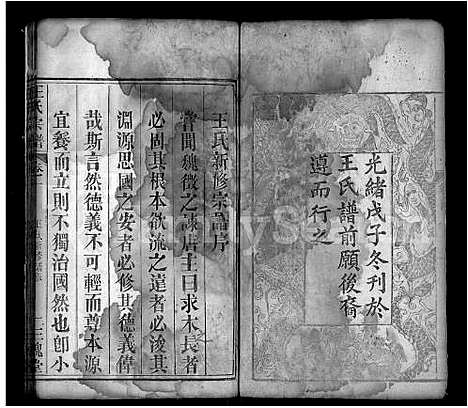 光緒戊子冬刊於
王氏譜前願後裔
遵而行之
王氏新修宗譜序
嘗聞魏徵之諫唐主曰求木長者
必固其根本欲流之遠者必浚其
淵源思國之安者必修其德義偉
哉斯言然德義不可輕而尊本源
宜養而立則不獨治國然也卽小
王氏宗譜
三槐堂